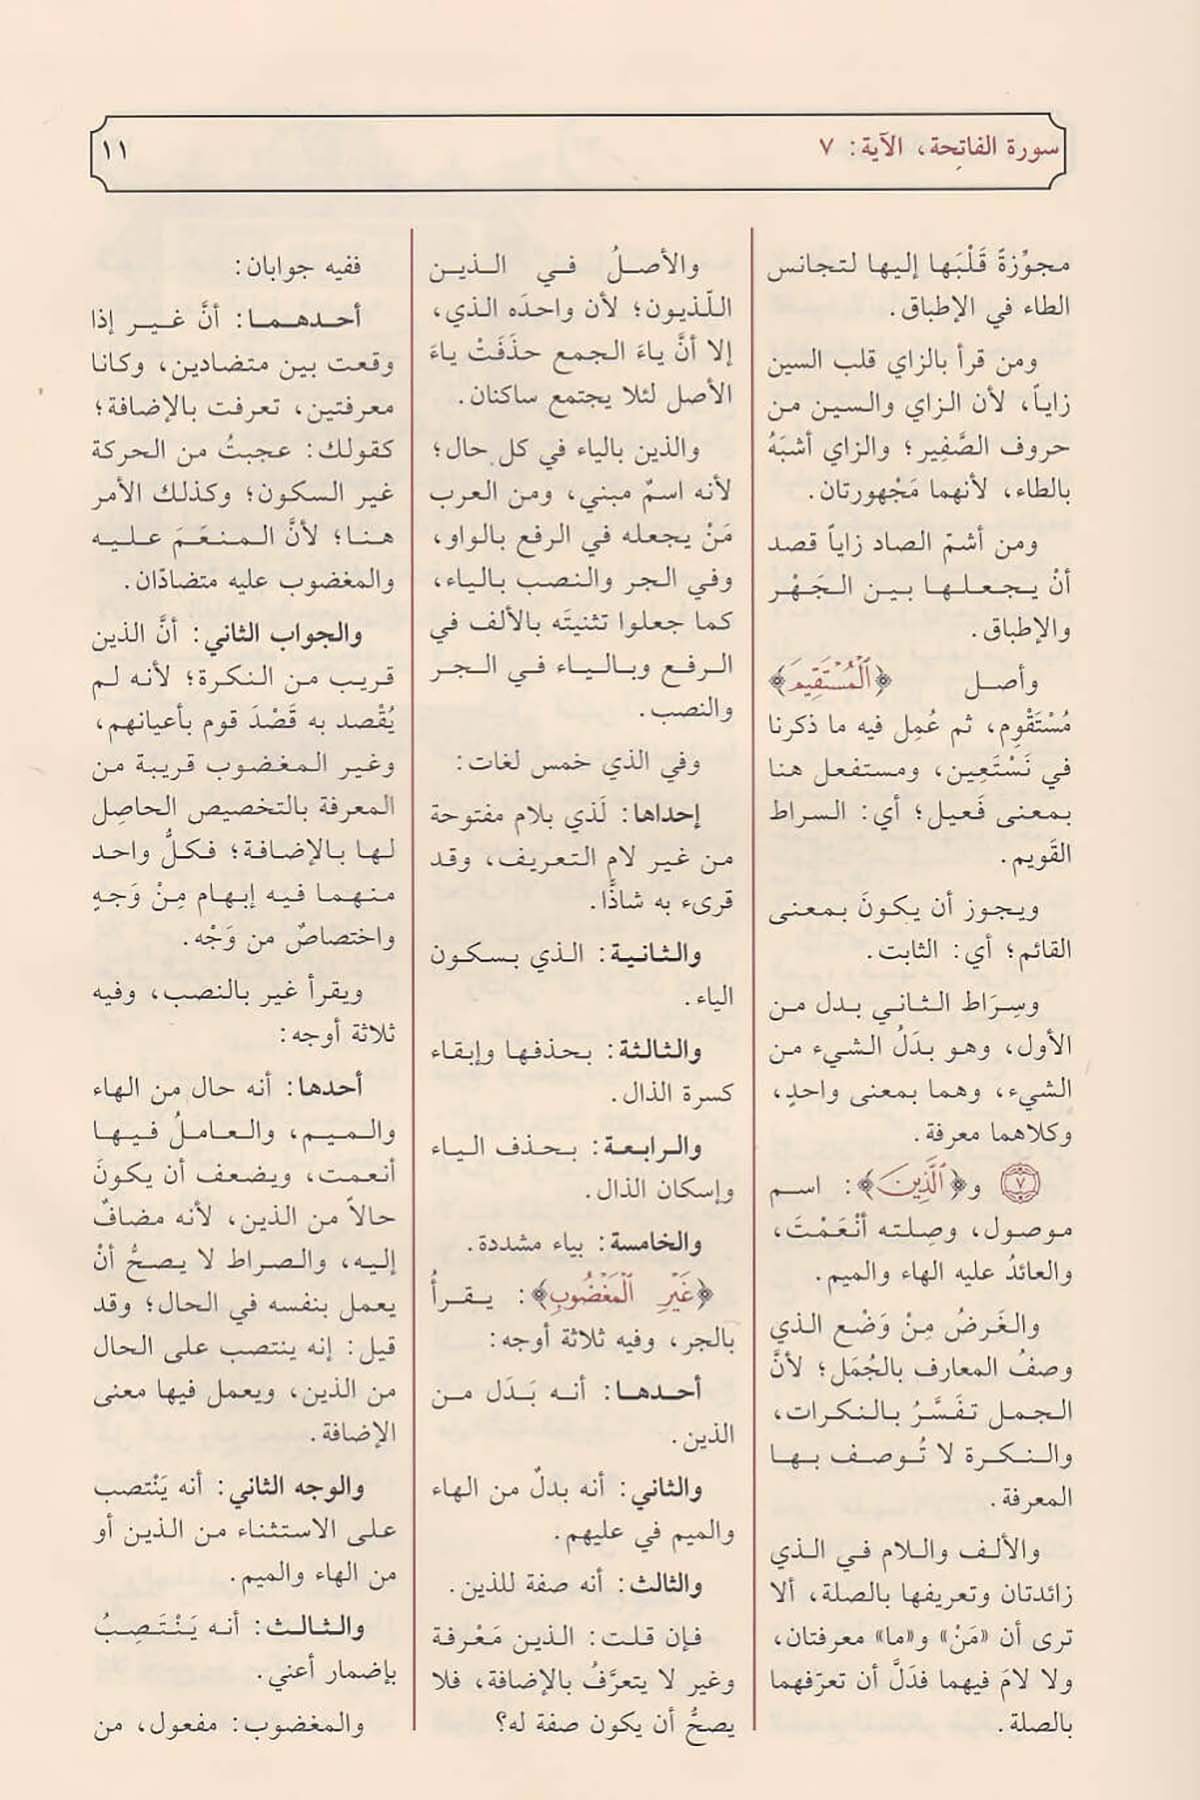 سورة الفاتِحة، الآية: ٧
١١
مجوِّزةً قَلْبَها إليها لتجانس
الطاء في الإطباق.
ومن قرأ بالزاي قلب السين
زاياً، لأن الزاي والسين من
حروف الصَّفِير؛ والزاي أشبَهُ
بالطاء، لأنهما مَجْهورتان.
ومن أشمّ الصاد زاياً قصد
أنْ يجعلها بين الجَهْر
والإطباق.
وأصل ﴿ٱلْمُسْتَقِيمَ﴾
مُسْتَقْوِم، ثم عُمِل فيه ما ذكرنا
في نَسْتَعِين، ومستفعل هنا
بمعنى فَعيل؛ أي: السراط
القَويم.
ويجوز أن يكونَ بمعنى
القائم؛ أي: الثابت.
وسِرَاط الثاني بدل من
الأول، وهو بدَلُ الشيء من
الشيء، وهما بمعنى واحدٍ،
وكلاهما معرفة.
٧ و﴿ٱلَّذِينَ﴾: اسم
موصول، وصِلته أنْعَمْتَ،
والعائدُ عليه الهاء والميم.
والغَرضُ مِنْ وَضْع الذي
وصفُ المعارف بالجُمَل؛ لأنَّ
الجمل تفَسَّرُ بالنكرات،
والنكرة لا تُوصف بها
المعرفة.
والألف واللام في الذي
زائدتان وتعريفها بالصلة، ألا
ترى أن «مَنْ» و«ما» معرفتان،
ولا لامَ فيهما فدَلَّ أن تعرّفهما
بالصلة.
والأصلُ في الذين
اللّذيون؛ لأن واحدَه الذي،
إلا أنَّ ياءَ الجمع حذَفَتْ ياءَ
الأصل لئلا يجتمع ساكنان.
والذين بالياء في كل حال؛
لأنه اسمٌ مبني، ومن العرب
مَنْ يجعله في الرفع بالواو،
وفي الجر والنصب بالياء،
كما جعلوا تثنيتَه بالألف في
الرفع وبالياء في الجر
والنصب.
وفي الذي خمس لغات:
إحداها: لَذي بلام مفتوحة
من غير لام التعريف، وقد
قرىء به شاذًّا.
والثانية: الذي بسكون
الياء.
والثالثة: بحذفها وإبقاء
كسرة الذال.
والرابعة: بحذف الياء
وإسكان الذال.
والخامسة: بياء مشددة.
﴿غَيْرِ ٱلْمَغْضُوبِ﴾: يقرأُ
بالجر، وفيه ثلاثة أوجه:
أحدها: أنه بَدَل من
الذين.
والثاني: أنه بدلٌ من الهاء
والميم في عليهم.
والثالث: أنه صفة للذين.
فإن قلت: الذين مَعْرفة
وغير لا يتعرَّفُ بالإضافة، فلا
يصحُّ أن يكون صفة له؟
ففيه جوابان:
أحدهما: أنَّ غير إذا
وقعت بين متضادين، وكانا
معرفتين، تعرفت بالإضافة؛
كقولك: عجبتُ من الحركة
غير السكون؛ وكذلك الأمر
هنا؛ لأنَّ المنعَمَ عليه
والمغضوب عليه متضادّان.
والجواب الثاني: أنَّ الذين
قريب من النكرة؛ لأنه لم
يُقْصد به قَصْدَ قوم بأعيانهم،
وغير المغضوب قريبة من
المعرفة بالتخصيص الحاصِل
لها بالإضافة؛ فكلُّ واحد
منهما فيه إبهام مِنْ وَجهِ
واختصاصٌ من وَجْه.
ويقرأ غير بالنصب، وفيه
ثلاثة أوجه:
أحدها: أنه حال من الهاء
والميم، والعاملُ فيها
أنعمت، ويضعف أن يكونَ
حالاً من الذين، لأنه مضافٌ
إليه، والصراط لا يصحُّ أنْ
يعمل بنفسه في الحال؛ وقد
قيل: إنه ينتصب على الحال
من الذين، ويعمل فيها معنى
الإضافة.
والوجه الثاني: أنه يَنْتصب
على الاستثناء من الذين أو
من الهاء والميم.
والثالث: أنه يَنْتَصِبُ
بإضمار أعني.
والمغضوب: مفعول، من